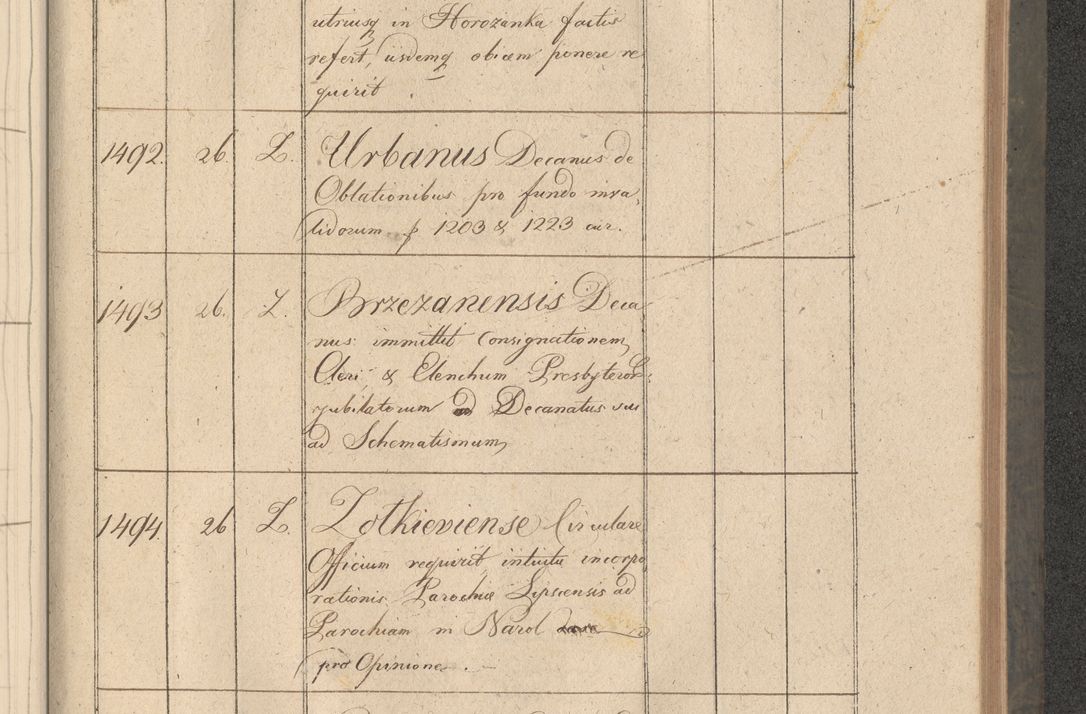 utriusq in Horozanka factis
refert, iisdemq obicem ponere re
quirit.
1492. 26. L. Urbanus Decanus de
Oblationibus pro fundo inva,
lidorum p 1203 & 1223 cur.
1493 26. L. Brzezanensis Deca
nus immittit Consignationem
Cleri, & Elenchum Presbyteror:
jubilatorum Decanatus sui
ad Schematismum
1494. 26 L. Zolkieviense Circulare
Officium requirit intuitu incorpo,
rationis Parochiæ Lipsiensis ad
Parochiam in Narol
pro Opinione.